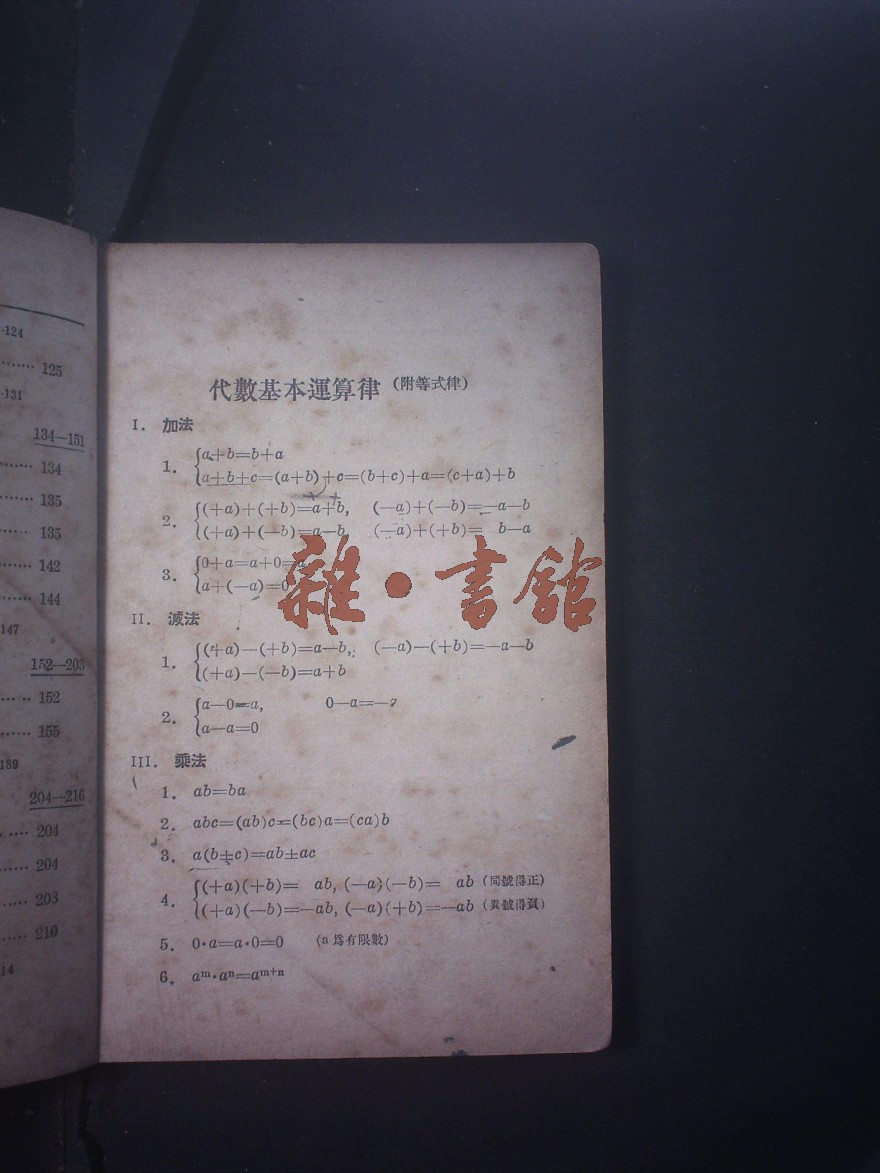 ·124
······ 125
·131
134—151
······ 134
······ 135
······ 135
······ 142
······ 144
147
152—203
······ 152
······ 155
189
204—216
···· 204
····· 204
····· 203
····· 210
14
代數基本運算律（附等式律）
I. 加法
1. {a+b=b+a
a+b+c=(a+b)+c=(b+c)+a=(c+a)+b
2. {(+a)+(+b)=a+b, (—a)+(—b)=—a—b
(+a)+(—b)=a—b, (—a)+(+b)= b—a
3. {0+a=a+0=a
a+(—a)=0
雜·書館
II. 減法
1. {(+a)—(+b)=a—b, (—a)—(+b)=—a—b
(+a)—(—b)=a+b
2. {a—0=a, 0—a=—
a—a=0
III. 乘法
1. ab=ba
2. abc=(ab)c=(bc)a=(ca)b
3. a(b±c)=ab±ac
4. {(+a)(+b)= ab, (—a)(—b)= ab (同號得正)
(+a)(—b)=—ab, (—a)(+b)=—ab (異號得負)
5. 0·a=a·0=0 (a 爲有限數)
6. aᵐ·aⁿ=aᵐ⁺ⁿ